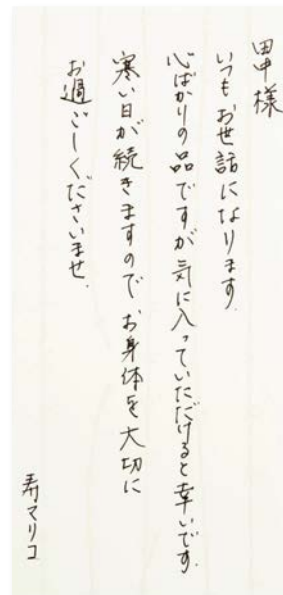 田中様
いつもお世話になります.
心ばかりの品ですが気に入っていただけると幸いです.
寒い日が続きますのでお身体を大切に
お過ごしくださいませ.
寿マリコ